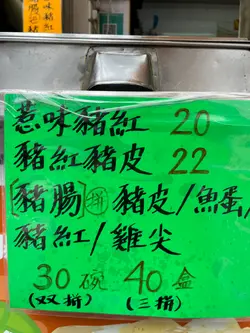 惹味豬紅 20
豬紅豬皮 22
[豬腸] 拼 豬皮/魚蛋/
豬紅/雞尖
30碗 40盒
(双拼) (三拼)